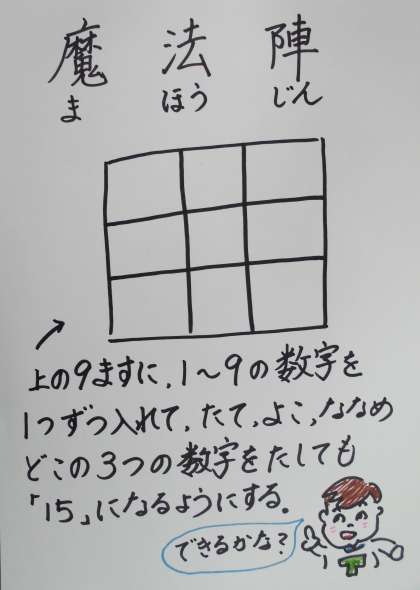 魔法陣
ま ほう じん
上の9ますに,1～9の数字を
1つずつ入れて,たて,よこ,ななめ
どこの3つの数字をたしても
「15」になるようにする。
できるかな?